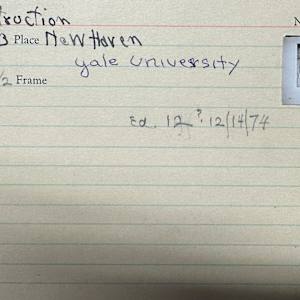 truction
3 Place New Haven
Yale University
1/2 Frame
Ed. 12 ? 12/14/74
N